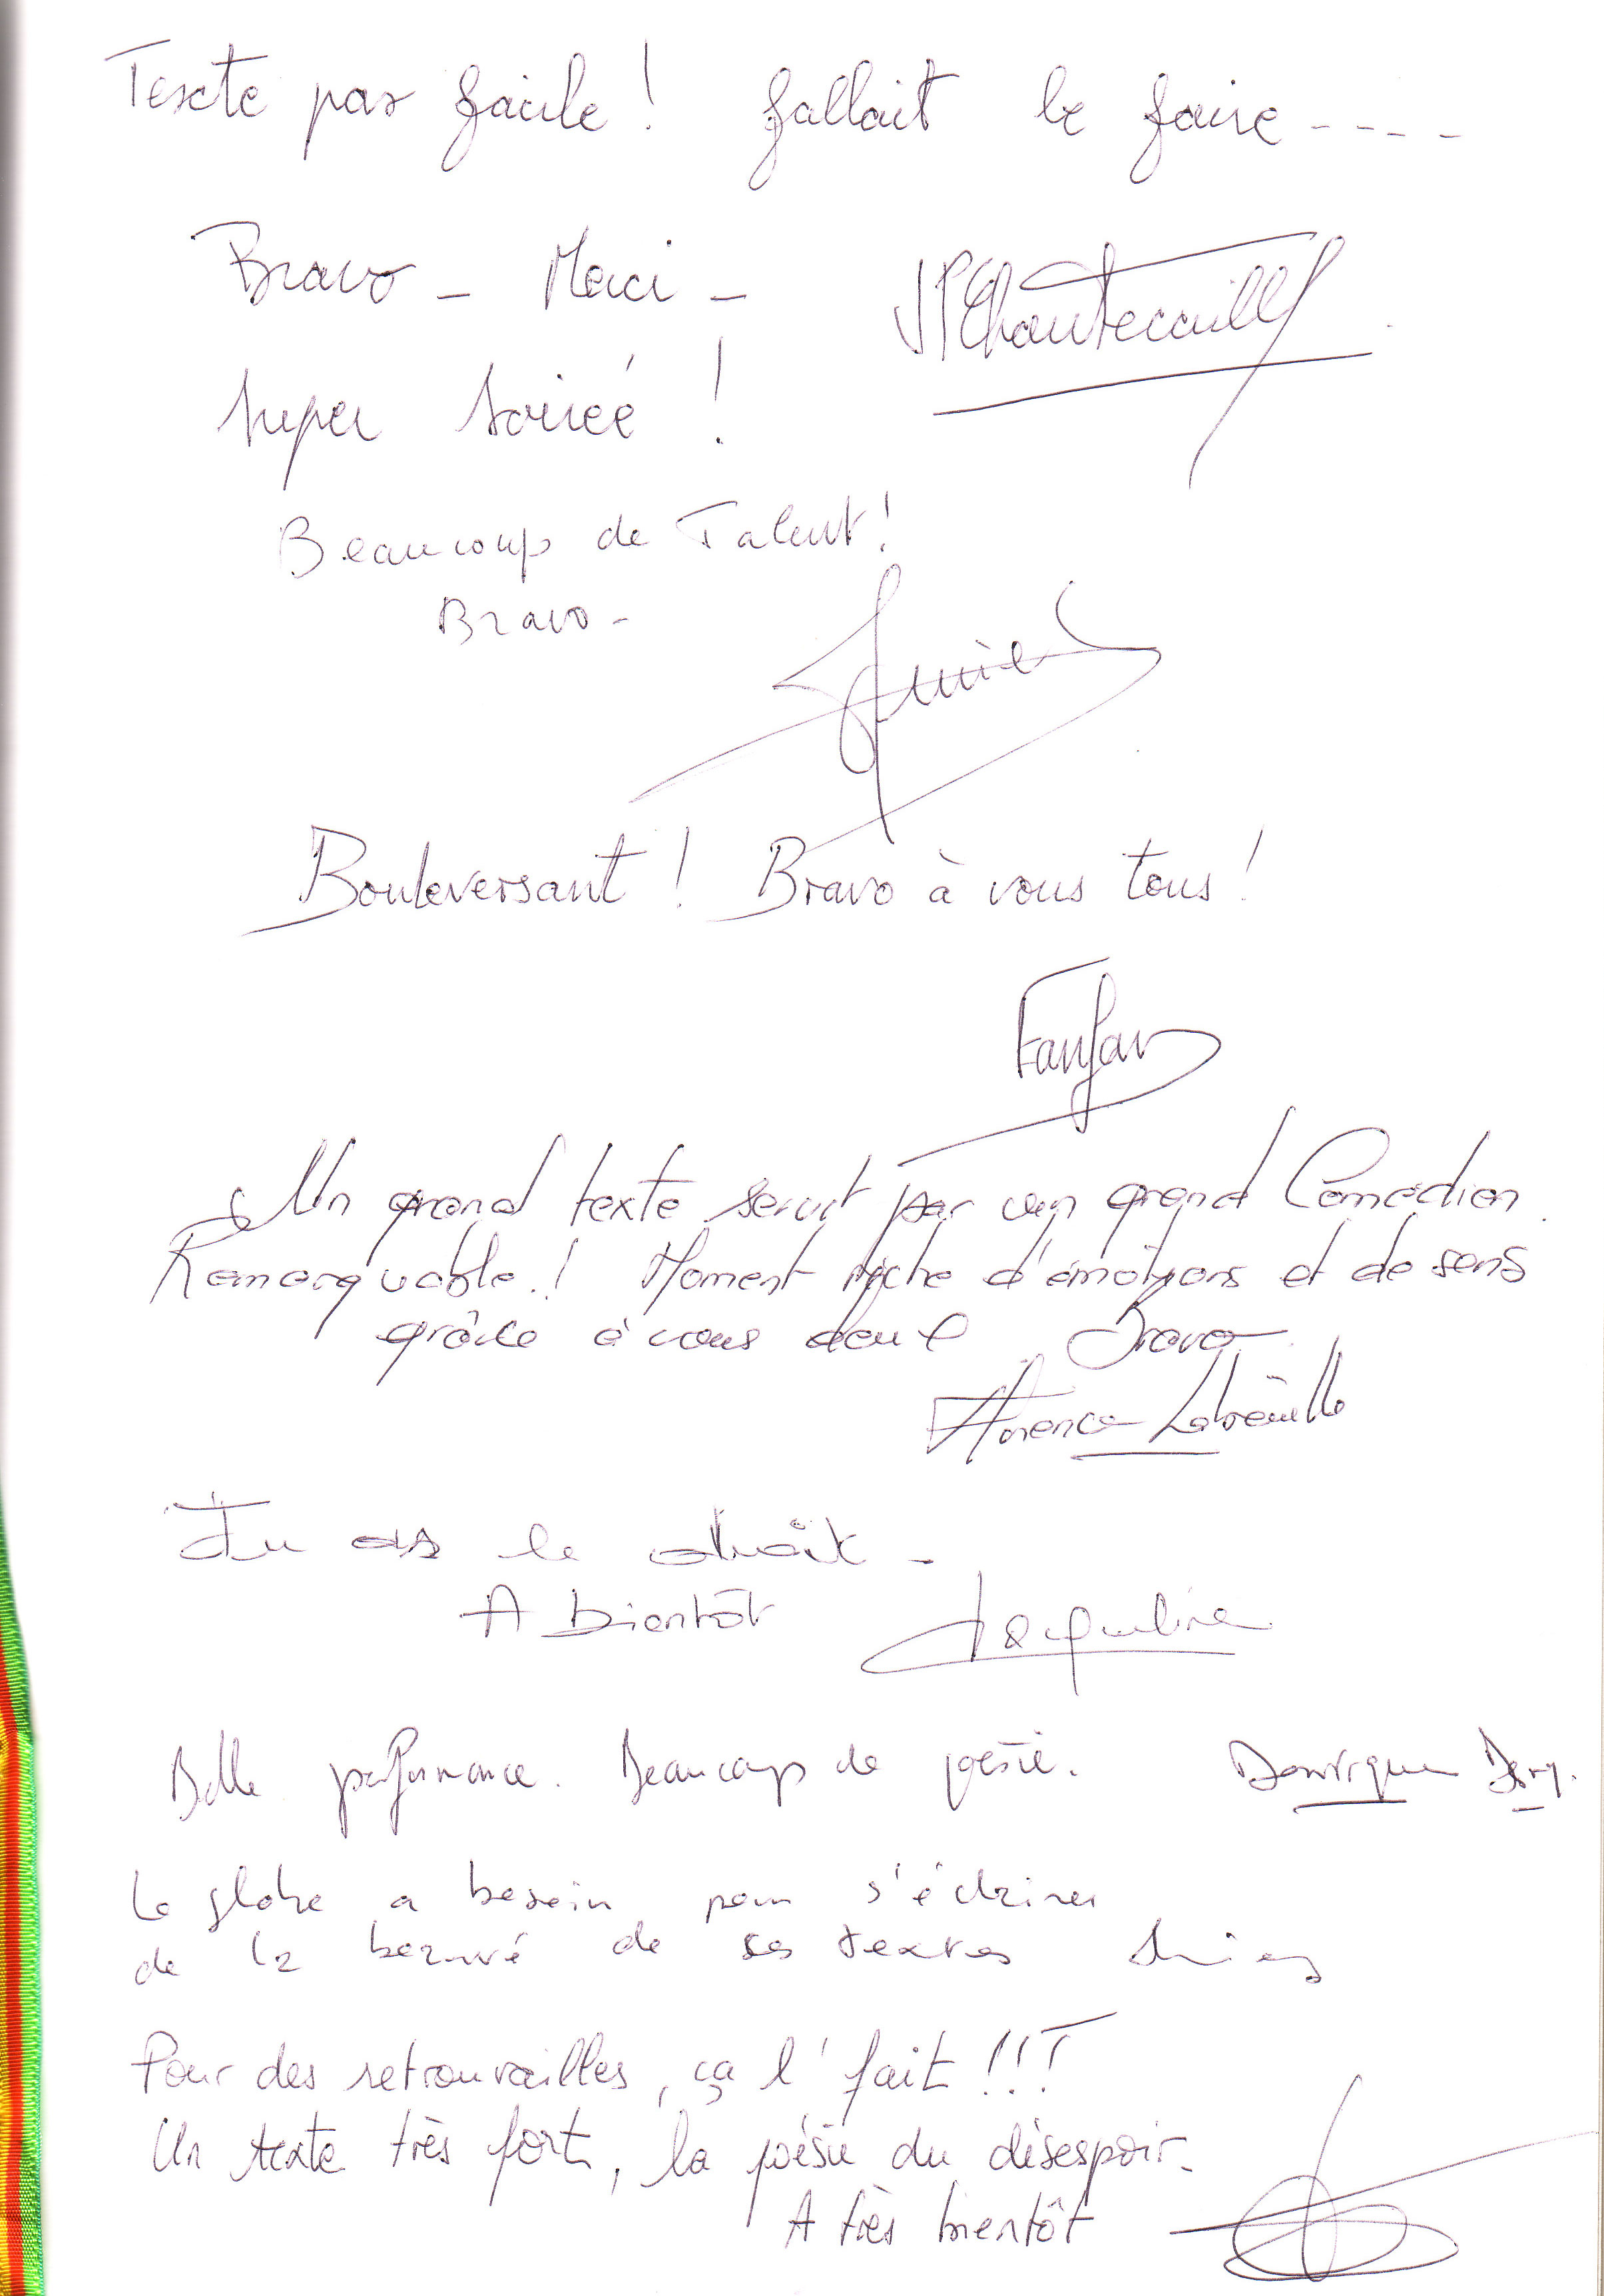 Texte pas facile ! fallait le faire ----
Bravo - Merci -
JP Chantecaille
super soirée !
Beaucoup de Talent !
Bravo -
Bouleversant ! Bravo à vous tous !
Fanfan
Un grand texte servit par un grand Comédien.
Remarquable ! Moment riche d'émotions et de sens
grâce à vous deux Bravo
Florence
Tu as le droit -
A bientôt Jacqueline
Belle performance. Beaucoup de poésie. Dominique
Le globe a besoin pour s'éclairer
de la beauté de ses textes
Pour des retrouvailles, ça l'fait !!!
Un texte très fort, la poésie du désespoir.
A très bientôt